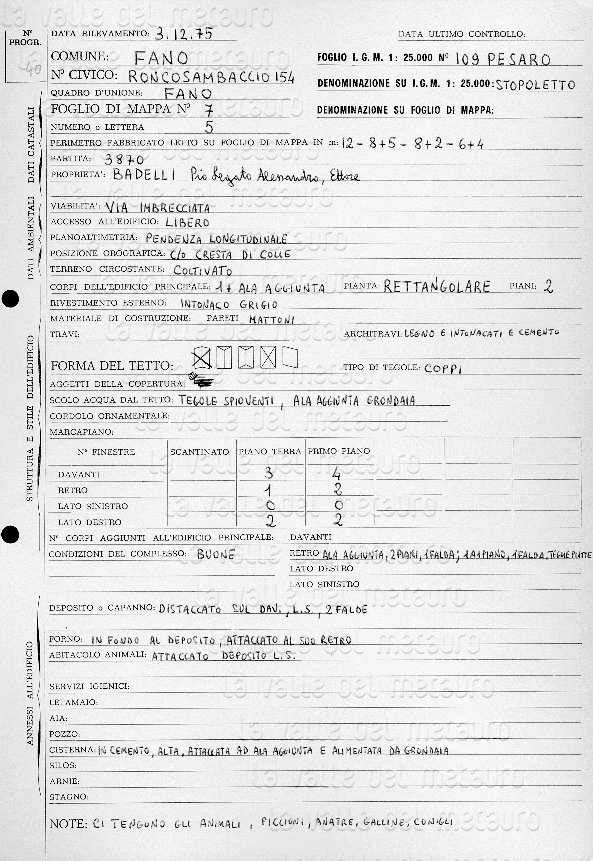 Nº PROGR.
40
DATA RILEVAMENTO: 3.12.75
DATA ULTIMO CONTROLLO:
COMUNE: FANO
FOGLIO I.G.M. 1: 25.000 Nº 109 PESARO
Nº CIVICO: RONCOSAMBACCIO 154
DENOMINAZIONE SU I.G.M. 1: 25.000: STOPOLETTO
QUADRO D'UNIONE: FANO
FOGLIO DI MAPPA Nº 7
DENOMINAZIONE SU FOGLIO DI MAPPA:
NUMERO o LETTERA 5
PERIMETRO FABBRICATO LETTO SU FOGLIO DI MAPPA IN m: 12-8+5-8+2-6+4
PARTITA: 3870
PROPRIETA': BADELLI Pio Legato Alessandro, Ettore
DATI CATASTALI
VIABILITA': VIA IMBRECCIATA
ACCESSO ALL'EDIFICIO: LIBERO
PLANOALTIMETRIA: PENDENZA LONGITUDINALE
POSIZIONE OROGRAFICA: C/O CRESTA DI COLLE
TERRENO CIRCOSTANTE: COLTIVATO
DATI AMBIENTALI
CORPI DELL'EDIFICIO PRINCIPALE: 1 + ALA AGGIUNTA PIANTA RETTANGOLARE PIANI: 2
RIVESTIMENTO ESTERNO: INTONACO GRIGIO
MATERIALE DI COSTRUZIONE: PARETI MATTONI
TRAVI:
ARCHITRAVI: LEGNO E INTONACATI E CEMENTO
FORMA DEL TETTO:
TIPO DI TEGOLE: COPPI
AGGETTI DELLA COPERTURA:
SCOLO ACQUA DAL TETTO: TEGOLE SPIOVENTI, ALA AGGIUNTA GRONDAIA
CORDOLO ORNAMENTALE:
MARCAPIANO:
Nº FINESTRE SCANTINATO PIANO TERRA PRIMO PIANO
DAVANTI 3 4
RETRO 1 2
LATO SINISTRO 0 0
LATO DESTRO 2 2
Nº CORPI AGGIUNTI ALL'EDIFICIO PRINCIPALE: DAVANTI
CONDIZIONI DEL COMPLESSO: BUONE
RETRO ALA AGGIUNTA, 2 PIANI, 1 FALDA; 1 A 1 PIANO, 1 FALDA, TEGHE PIATTE
LATO DESTRO
LATO SINISTRO
STRUTTURA E STILE DELL'EDIFICIO
DEPOSITO o CAPANNO: DISTACCATO SUL DAV., L.S., 2 FALDE
FORNO: IN FONDO AL DEPOSITO, ATTACCATO AL SUO RETRO
ABITACOLO ANIMALI: ATTACCATO DEPOSITO L.S.
SERVIZI IGIENICI:
LETAMAIO:
AIA:
POZZO:
CISTERNA: IN CEMENTO, ALTA, ATTACCATA AD ALA AGGIUNTA E ALIMENTATA DA GRONDAIA
SILOS:
ARNIE:
STAGNO:
ANNESSI ALL'EDIFICIO
NOTE: CI TENGONO GLI ANIMALI, PICCIONI, ANATRE, GALLINE, CONIGLI
la valle del metauro